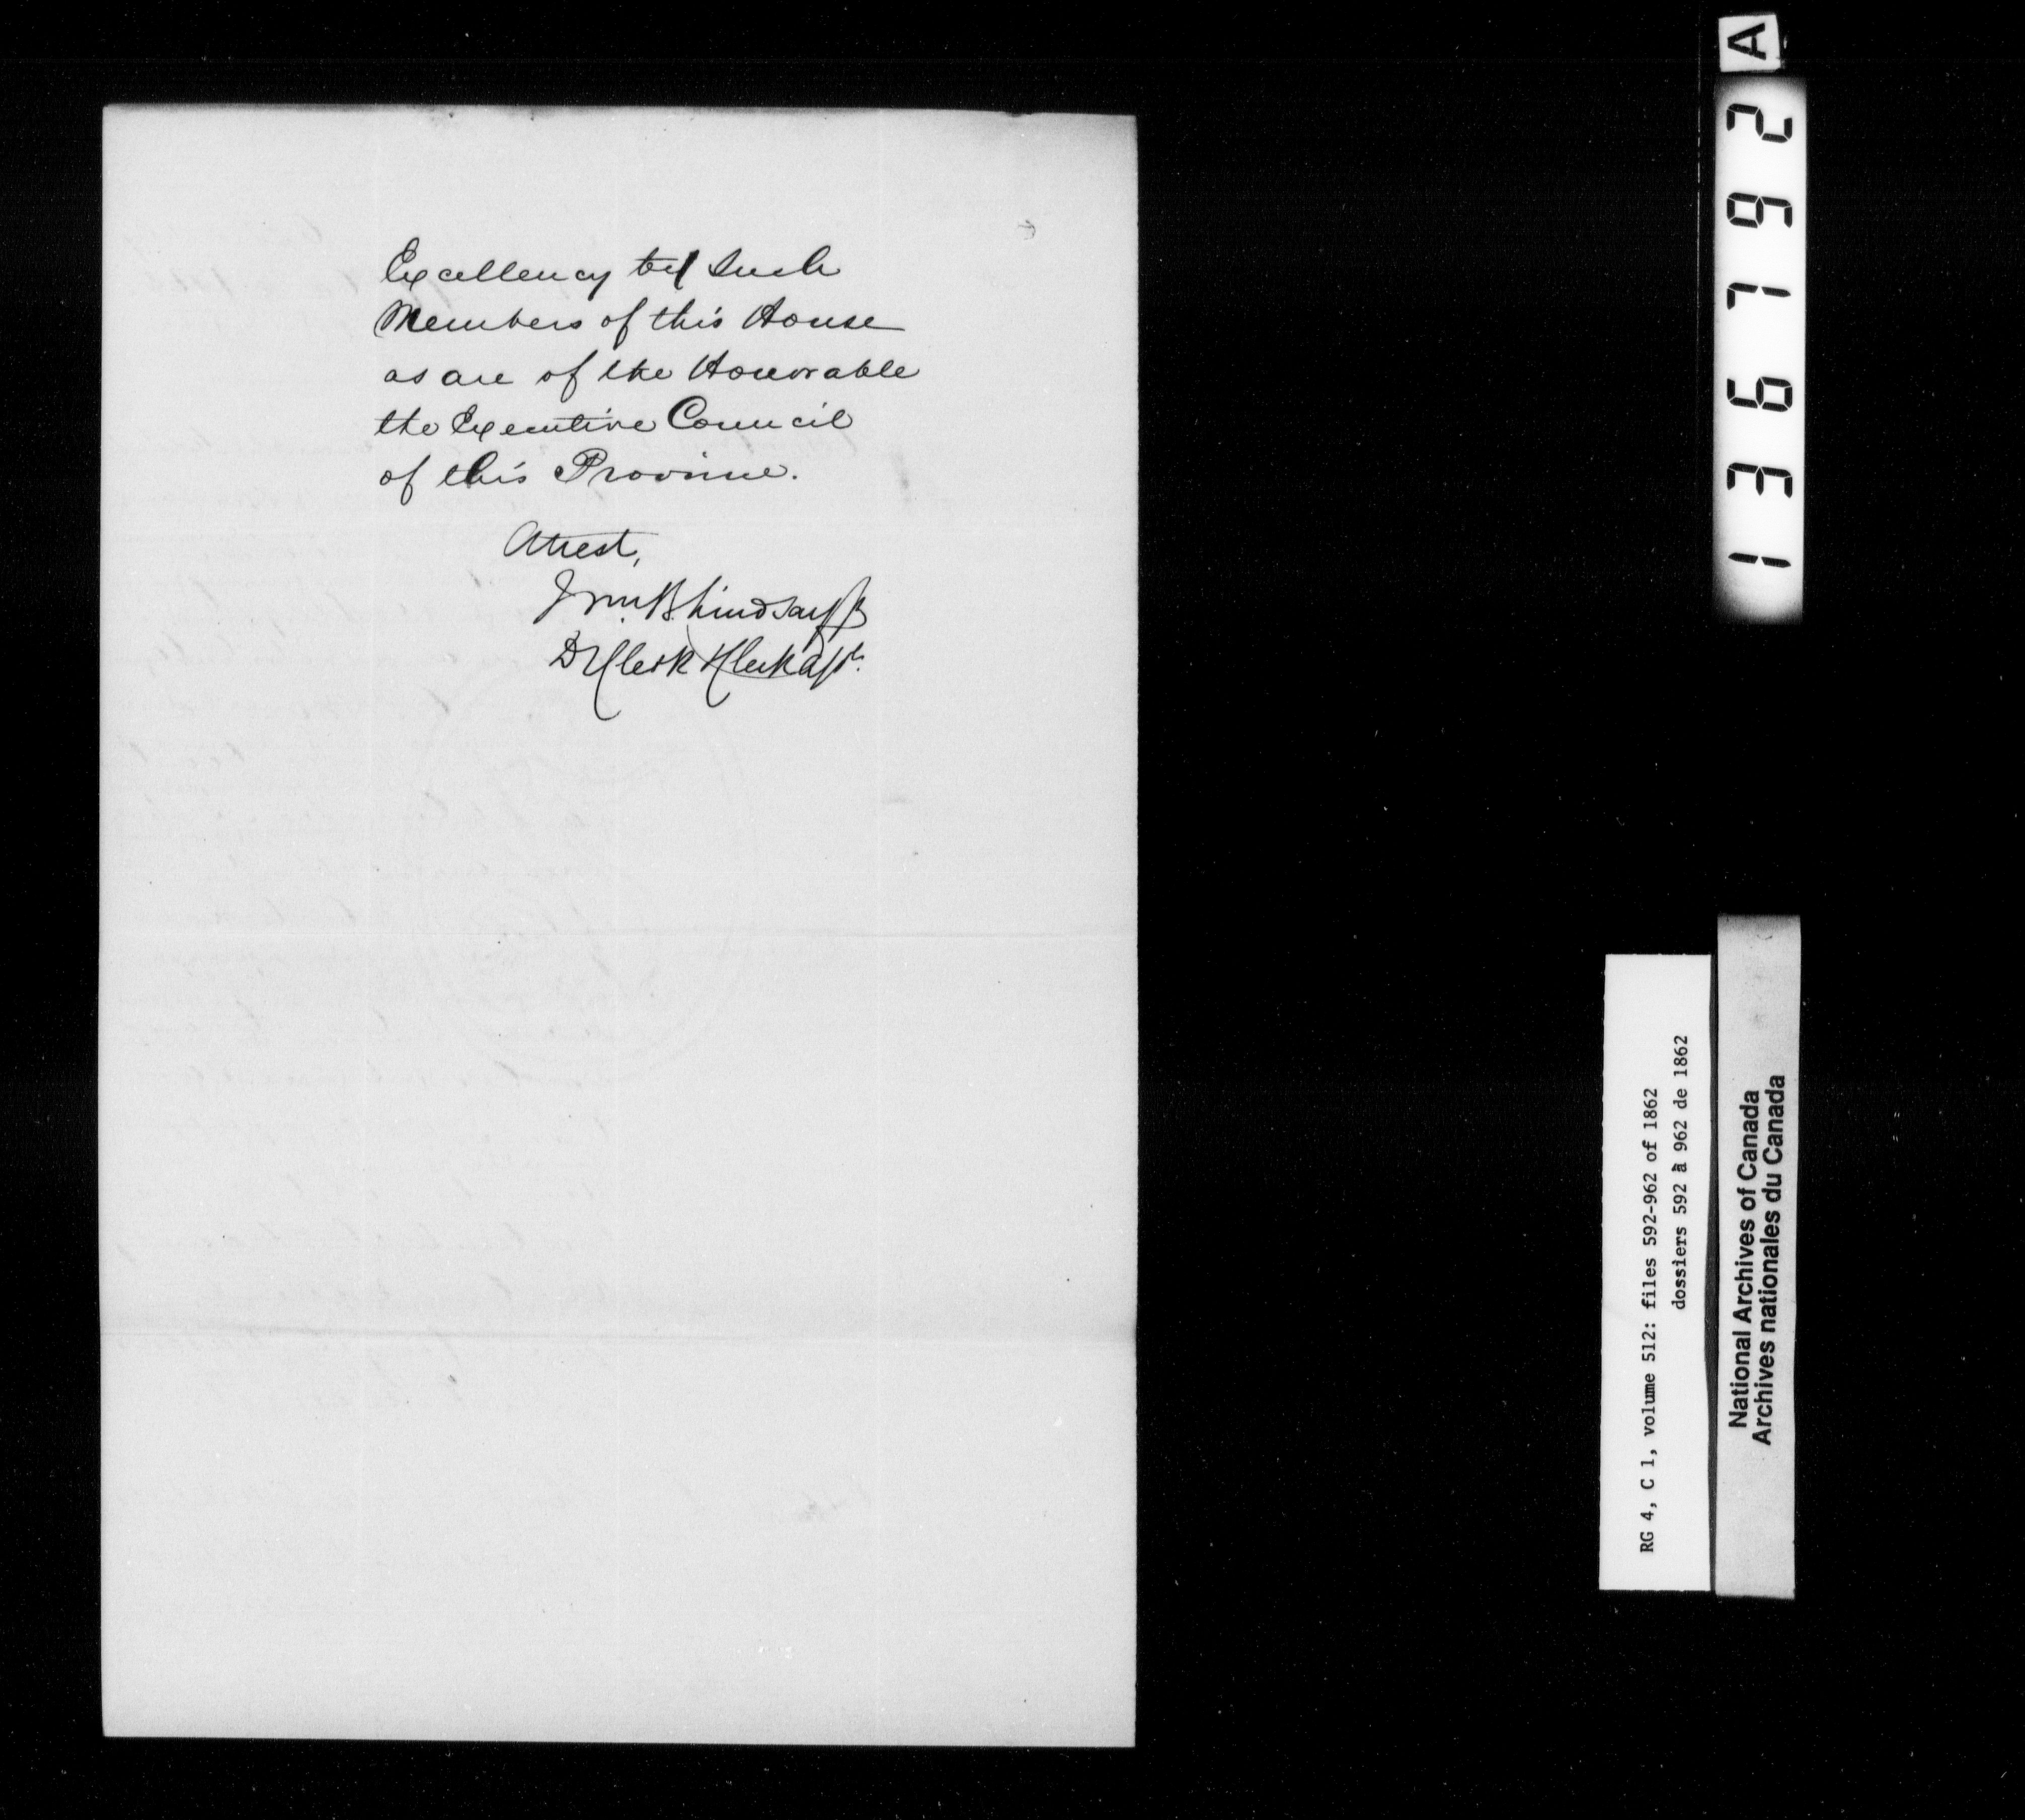 Excellency by such
Members of this House
as are of the Honorable
the Executive Council
of this Province.
Attest,
Wm. B. Lindsay Jr
Dy Clerk Leg. Ass.
A
136792
RG 4, C 1, volume 512: files 592-962 of 1862
dossiers 592 à 962 de 1862
National Archives of Canada
Archives nationales du Canada